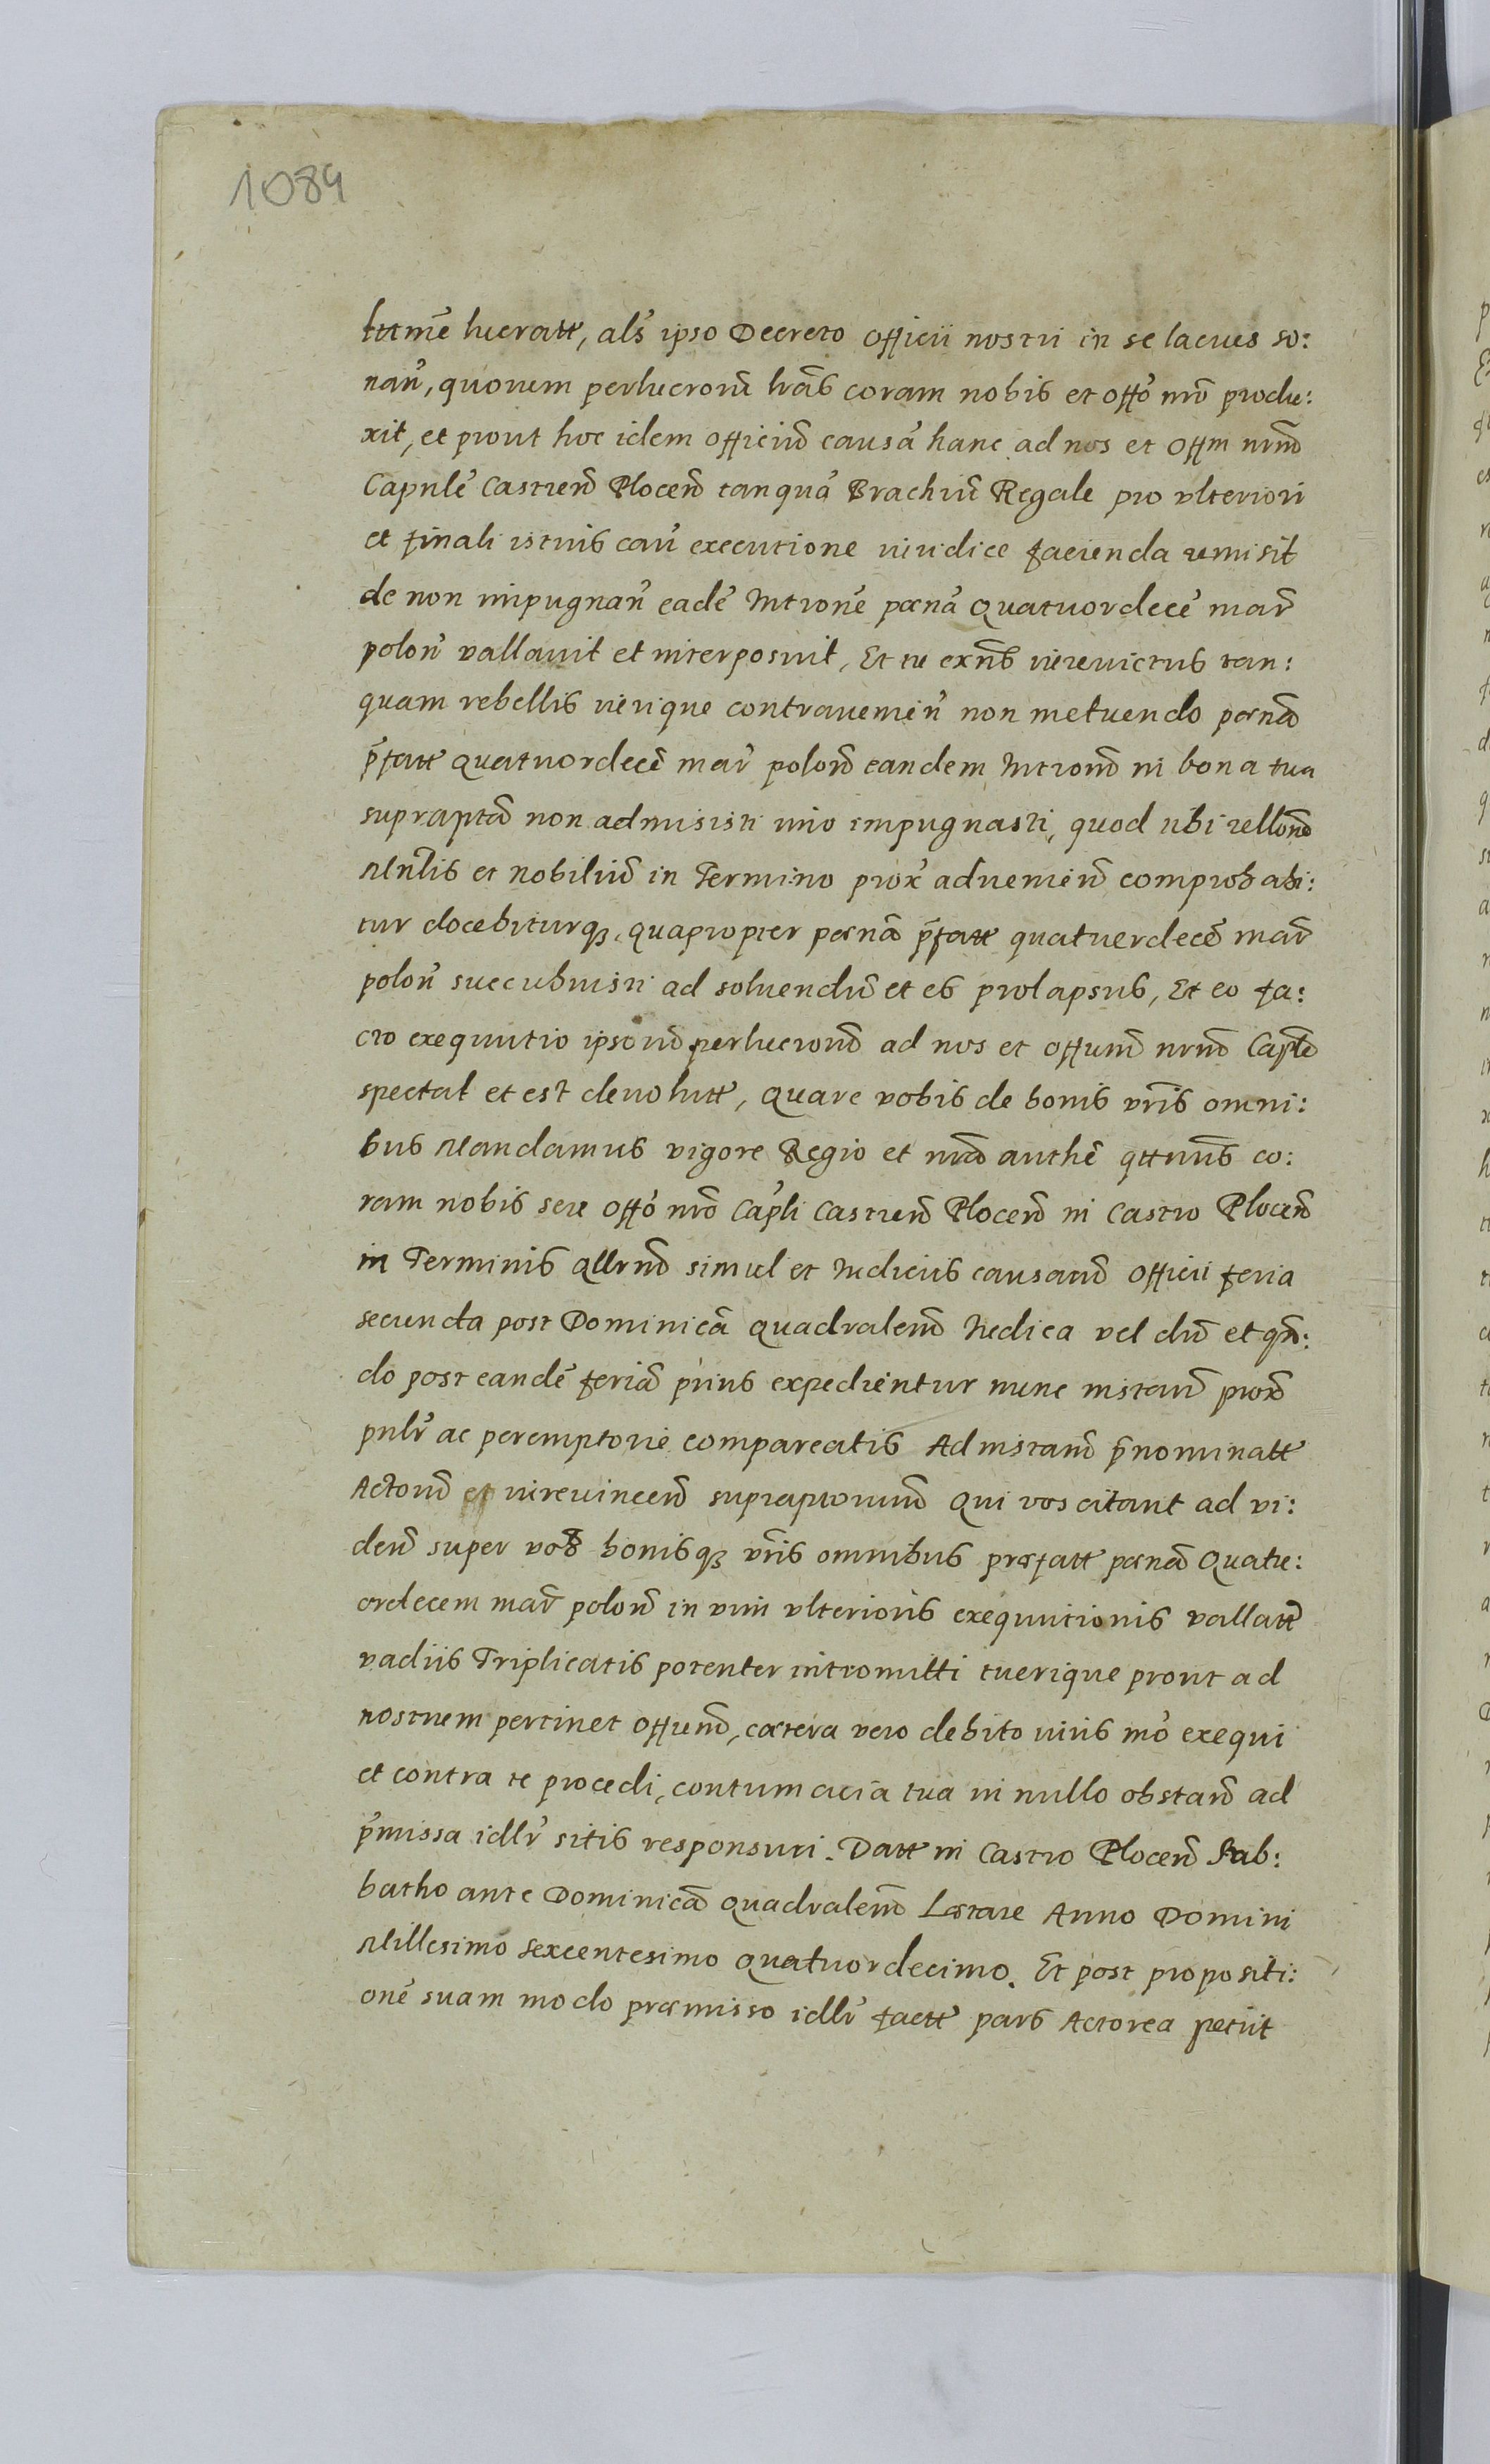 1089
lucratt, als̃ ipso Decreto Officii nostri in se latius so:
nañ, quorum perlucrorũ lr̃as coram nobis et offo nr̃o produ:
xit, et prout hoc idem Officiũ causã hanc ad nos et Offm nrm̃
Capnle Castreñ Ploceñ tanquã Brachiũ Regale pro ulteriori
et finali istius cauñ executione iuridice facienda remisit
de non impugnañ eadẽ Intronẽ pœnã quatuordecẽ mar̃
poloñ vallavit et interposuit, Et tu exñs iurevictus tan:
quam rebellis iurique contraueñ non metuendo pœnã
p̃fatt quatuordecẽ mar̃ poloñ eandem Intronẽ in bona tua
supraptã non admisisti imo impugnasti, quod tibi rellonẽ
Mnrlis et nobiliũ in Termino prox̃ adueniẽn comprobabi:
tur docebiturq₃, quapropter pœnã p̃fatt quatuordecẽ mar̃
poloñ succubuisti ad soluendũ et es prolapsus, Et eo fa:
cto exequutio ipsorũ perlucrorũ ad nos et offium̃ nrm̃ Caplẽ
spectat et est devolutt, quare vobis de bonis vr̃is omni:
bus Mandamus vigore Regio et nr̃a authẽ qttnus co:
ram nobis seu offo nr̃o Capli Castreñ Ploceñ in Castro Ploceñ
in Terminis qllrnũ simul et Iudiciis causarũ Officii feria
secunda post Dominicã quadraleñ Iudica vel dũ et qñ:
do post eandẽ feriã prius expedientur nunc instañ prox̃
pnlr̃ ac peremptorie compareatis Ad instanã p̃nominatt
Actorũ et iurevinceñ supraptorum̃ Qui vos citant ad vi:
deñ super vos bonisq₃ vr̃is omnibus præfatt pœnã Quatu:
ordecem mar̃ poloñ in vim ulterioris exequutionis vallatt
vadiis Triplicatis potenter intromitti tuerique prout ad
nostrum pertinet offium̃, cætera vero debito iuris mo exequi
et contra te procedi, contumacia tua in nullo obstañ ad
p̃missa idlr̃ sitis responsuri. Datt in Castro Ploceñ Sab:
batho ante Dominicã quadraleñ Lætare Anno Domini
Millesimo sexcentesimo quatuordecimo. Et post propositi:
onẽ suam modo præmisso idlr̃ factt pars Actorea petiit